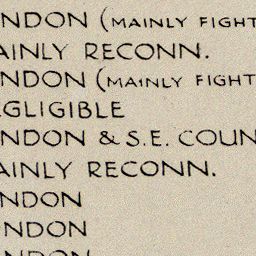 NDON (MAINLY FIGHT
AINLY RECONN.
NDON (MAINLY FIGHT
EGLIGIBLE
NDON & S.E. COUN
AINLY RECONN.
NDON
ONDON
ONDON